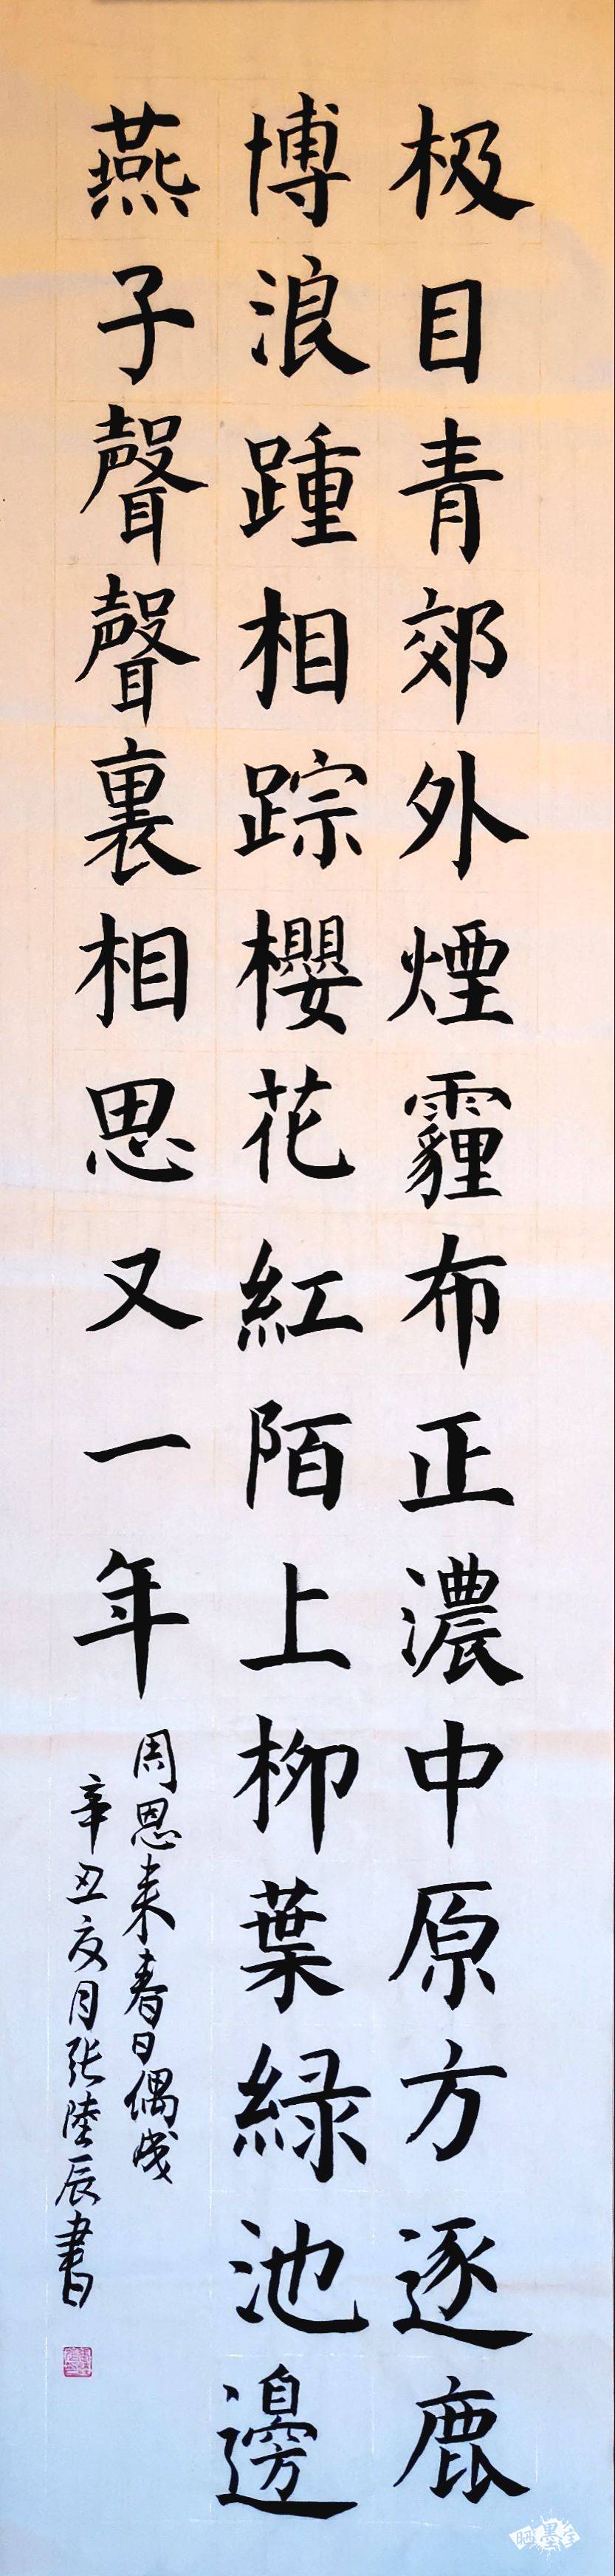 极目青郊外煙霾布正濃中原方逐鹿
博浪踵相踪櫻花紅陌上柳葉緑池邊
燕子聲聲裏相思又一年
周恩来春日偶成
辛丑亥月张陸辰書
晒墨宝